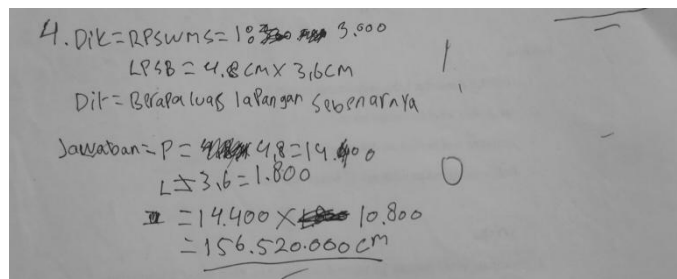 4. Dik = RPSWMS = 1: 3.000
LPSB = 4.8 cm X 3,6 cm
Dit = Berapa luas lapangan sebenarnya
Jawaban = P = 4,8 = 14.400
L = 3,6 = 1.800
= 14.400 X 10.800
= 156.520.000 cm
1
0